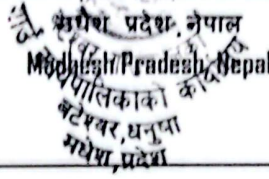 मधेश प्रदेश, नेपाल
Madhesh Pradesh, Nepal
पालिकाको
बटेश्वर, धनुषा
मधेश, प्रदेश